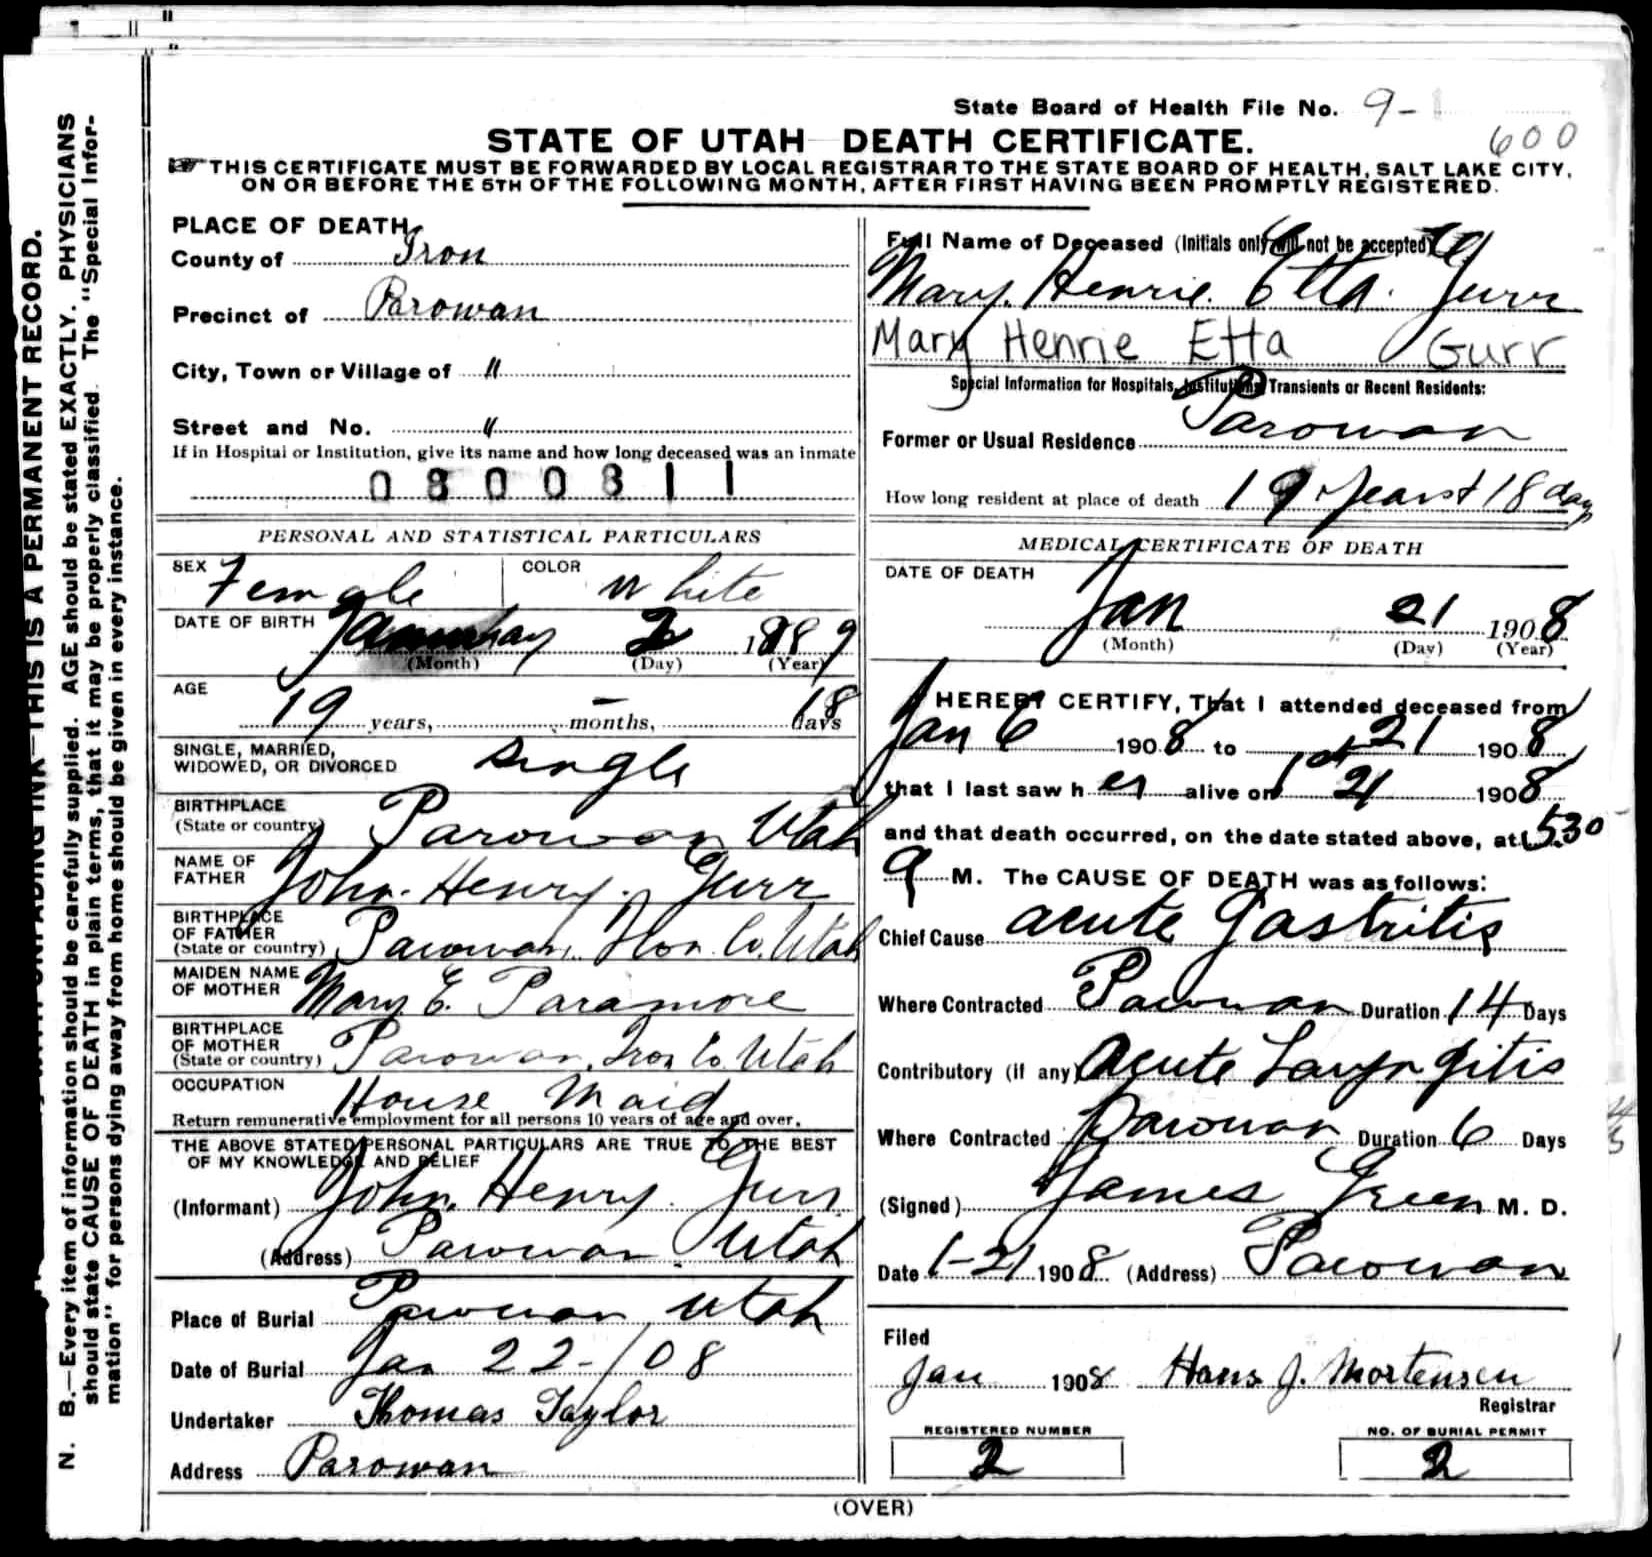 State Board of Health File No. 9-
600
STATE OF UTAH DEATH CERTIFICATE.
THIS CERTIFICATE MUST BE FORWARDED BY LOCAL REGISTRAR TO THE STATE BOARD OF HEALTH, SALT LAKE CITY,
ON OR BEFORE THE 5TH OF THE FOLLOWING MONTH, AFTER FIRST HAVING BEEN PROMPTLY REGISTERED.
N. B.—Every item of information should be carefully supplied. AGE should be stated EXACTLY. PHYSICIANS
should state CAUSE OF DEATH in plain terms, that it may be properly classified. The "Special Infor-
mation" for persons dying away from home should be given in every instance.
UNFADING INK—THIS IS A PERMANENT RECORD.
PLACE OF DEATH
County of Iron
Precinct of Parowan
City, Town or Village of "
Street and No. "
If in Hospital or Institution, give its name and how long deceased was an inmate
0800311
PERSONAL AND STATISTICAL PARTICULARS
SEX Female COLOR White
DATE OF BIRTH January 2 1889
(Month) (Day) (Year)
AGE
19 years, – months, 18 days
SINGLE, MARRIED,
WIDOWED, OR DIVORCED Single
BIRTHPLACE
(State or country) Parowan Utah
NAME OF
FATHER John Henry Gurr
BIRTHPLACE
OF FATHER
(State or country) Parowan, Iron Co. Utah
MAIDEN NAME
OF MOTHER Mary E. Paramore
BIRTHPLACE
OF MOTHER
(State or country) Parowan, Iron Co Utah
OCCUPATION House Maid
Return remunerative employment for all persons 10 years of age and over.
THE ABOVE STATED PERSONAL PARTICULARS ARE TRUE TO THE BEST
OF MY KNOWLEDGE AND BELIEF
(Informant) John Henry Gurr
(Address) Parowan Utah
Place of Burial Parowan Utah
Date of Burial Jan 22-/08
Undertaker Thomas Taylor
Address Parowan
Full Name of Deceased (Initials only will not be accepted)
Mary Henrie Etta Gurr
Mary Henrie Etta Gurr
Special Information for Hospitals, Institutions, Transients or Recent Residents:
Former or Usual Residence Parowan
How long resident at place of death 19 years + 18 days
MEDICAL CERTIFICATE OF DEATH
DATE OF DEATH
Jan 21 1908
(Month) (Day) (Year)
I HEREBY CERTIFY, That I attended deceased from
Jan 6 1908 to 21 1908
that I last saw her alive on 21 1908
and that death occurred, on the date stated above, at 5.30
M. The CAUSE OF DEATH was as follows:
Chief Cause acute Gastritis
Where Contracted Parowan Duration 14 Days
Contributory (if any) Acute Laryngitis
Where Contracted Parowan Duration 6 Days
(Signed) James Green M. D.
Date 1-21 1908 (Address) Parowan
Filed
Jan 1908 Hans J. Mortensen
Registrar
REGISTERED NUMBER
2
NO. OF BURIAL PERMIT
2
(OVER)